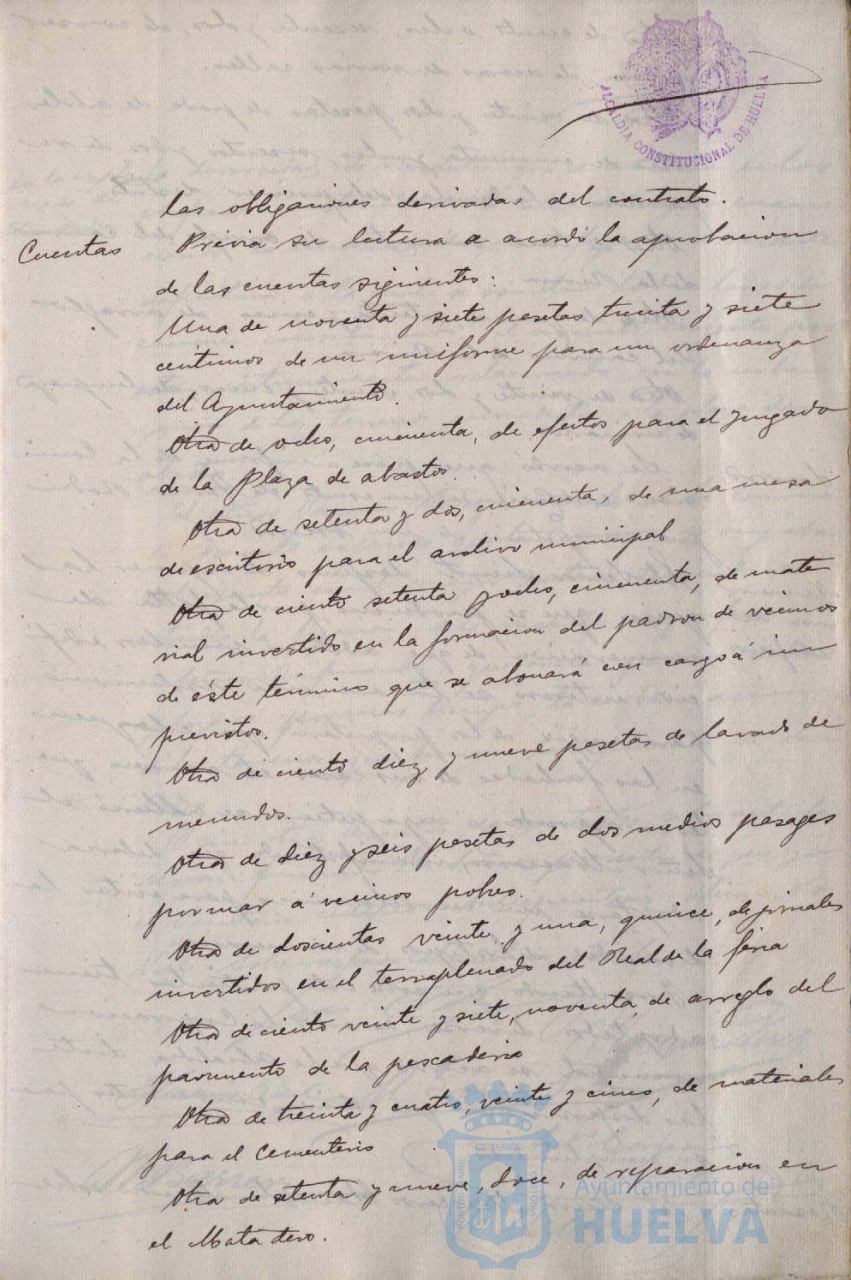 ALCALDIA CONSTITUCIONAL DE HUELVA
las obligaciones derivadas del contrato.
Cuentas
Prévia su lectura se acordó la aprobacion
de las cuentas siguientes:
Una de noventa y siete pesetas treita y siete
céntimos de un uniforme para un ordenanza
del Ayuntamiento.
Otra de ocho, cincuenta, de efectos para el juzgado
de la Plaza de abastos.
Otra de setenta y dos, cincuenta, de una mesa
de escritorio para el archivo municipal
Otra de ciento setenta y ocho, cincuenta, de mate
rial invertido en la formacion del padron de vecinos
de éste término que se abonará con cargo á im
previstos.
Otra de ciento diez y nueve pesetas de lavado de
menudos.
Otra de diez y seis pesetas de dos medios pasages
por mar á vecinos pobres.
Otra de doscientas veinte y una, quince, de jornales
invertidos en el terraplenado del Real de la feria
Otra de ciento veinte y siete, noventa, de arreglo del
pavimento de la pescaderia
Otra de treinta y cuatro, veinte y cinco, de materiales
para el Cementerio
Otra de setenta y nueve, doce, de reparacion en
el Matadero.
Ayuntamiento de
HUELVA